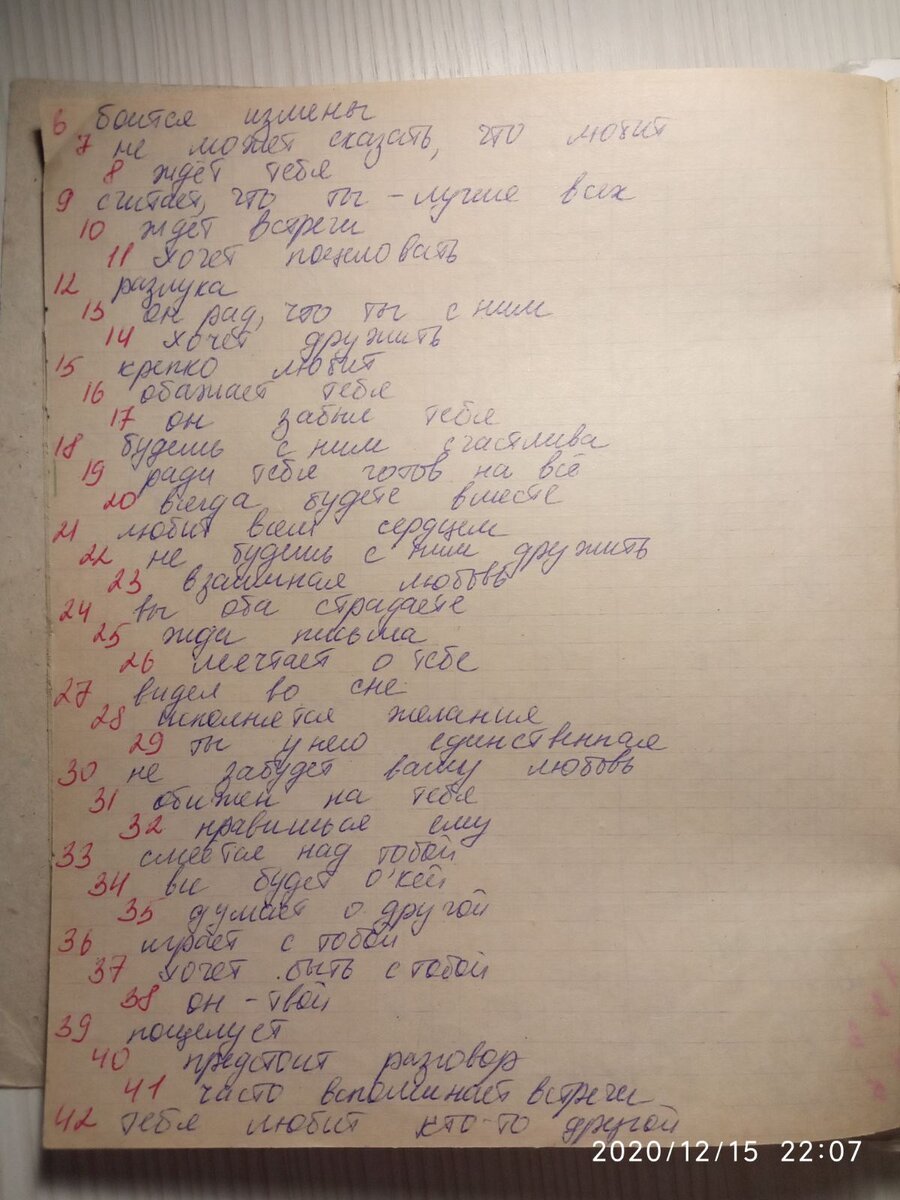 6 боится измены
7 не может сказать, что любит
8 ждёт тебя
9 считает, что ты - лучше всех
10 ждёт встречи
11 хочет поцеловать
12 разлука
13 он рад, что ты с ним
14 хочет дружить
15 крепко любит
16 обажает тебя
17 он забыл тебя
18 будешь с ним счастлива
19 ради тебя готов на всё
20 всегда будете вместе
21 любит всем сердцем
22 не будешь с ним дружить
23 взаимная любовь
24 вы оба страдаете
25 жди письма
26 мечтает о тебе
27 видел во сне
28 исполнятся желания
29 ты у него единственная
30 не забудет вашу любовь
31 обижен на тебя
32 нравишься ему
33 смеётся над тобой
34 все будет о'кей
35 думает о другой
36 играет с тобой
37 хочет быть с тобой
38 он - твой
39 поцелует
40 предстоит разговор
41 часто вспоминает встречи
42 тебя любит кто-то другой
2020/12/15 22:07